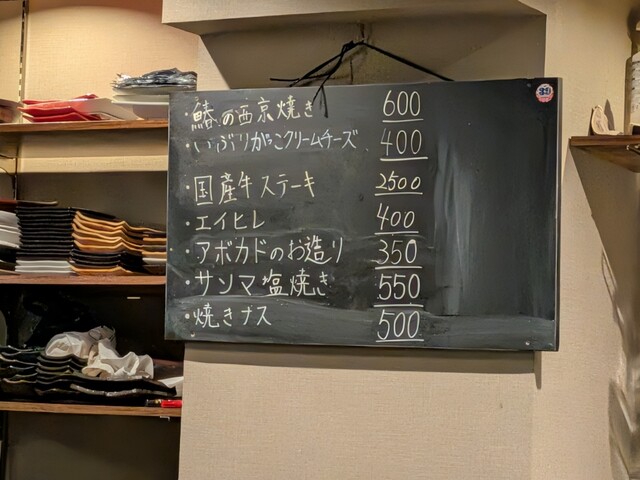 鰆の西京焼き 600
・いぶりがっこクリームチーズ 400
・国産牛ステーキ 2500
・エイヒレ 400
・アボカドのお造り 350
・サンマ塩焼き 550
・焼きナス 500